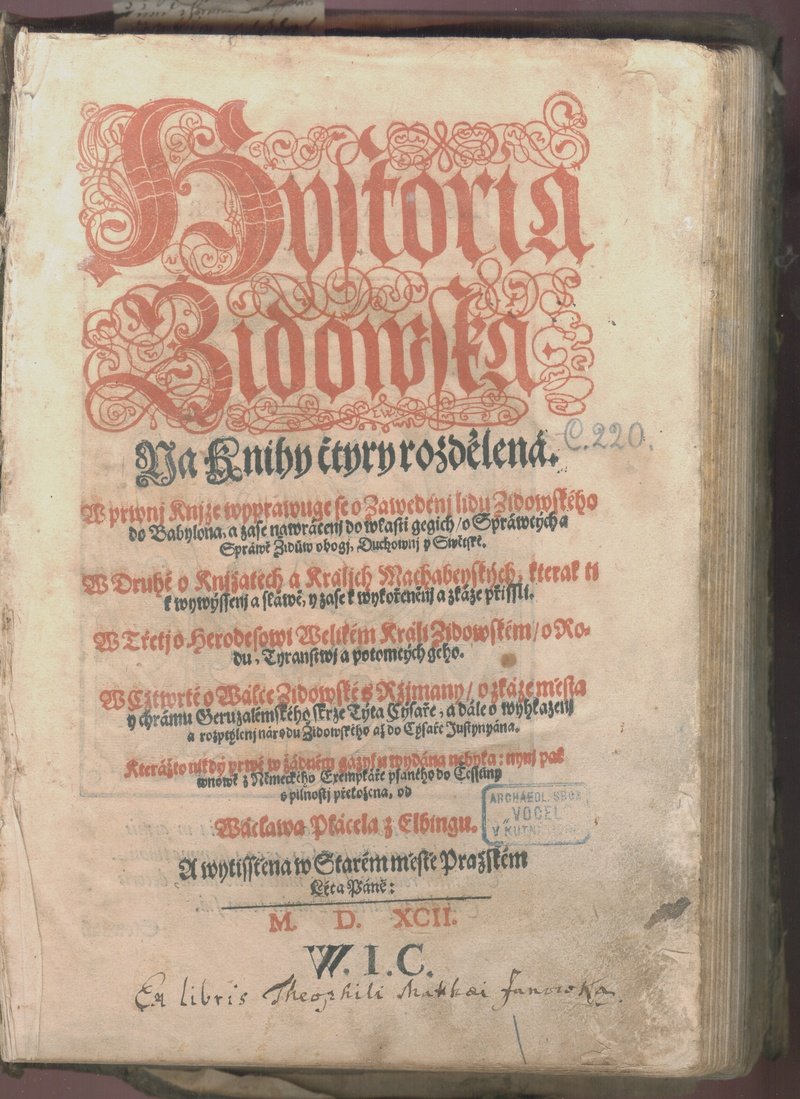 Hystoria
Židowská
Na Knihy čtyry rozdělená.
C.220.
W prwnj Knjze wyprawuge se o Zawedenj lidu Židowského
do Babylona, a zase nawrácenj do wlasti gegich / o Spráwcých a
Spráwě Židůw obogj, Duchownj y Swětské.
W Druhé o Knjžatech a Králjch Machabeyských, kterak ti
k wywýssenj a sláwě, y zase k wykořeněnj a zkáze přissli.
W Třetj o Herodesowi Welikém Králi Židowském / o Ro-
du, Tyranstwj a potomcých geho.
W Cžtwrté o Wálce Židowské s Ržjmany / o zkáze města
y chrámu Geruzalémského skrze Týta Cýsaře, a dále o wyhlazenj
a rozptýlenj národu Židowského až do Cýsaře Justynyána.
Kterážto nikdý prwé w žádném gazyku wydána nebyla: nynj pak
wnowě z Německého Exempláře psaného do Cžesstiny
s pilnostj přeložena, od
Wácslawa Plácela z Elbingu.
A wytisstěna w Starém městě Pražském
Léta Páně:
M. D. XCII.
W. I. C.
Ex libris Theophili Makkai Janowka.
ARCHAEOL. SBOR
"VOCEL"
V KUTNÉ